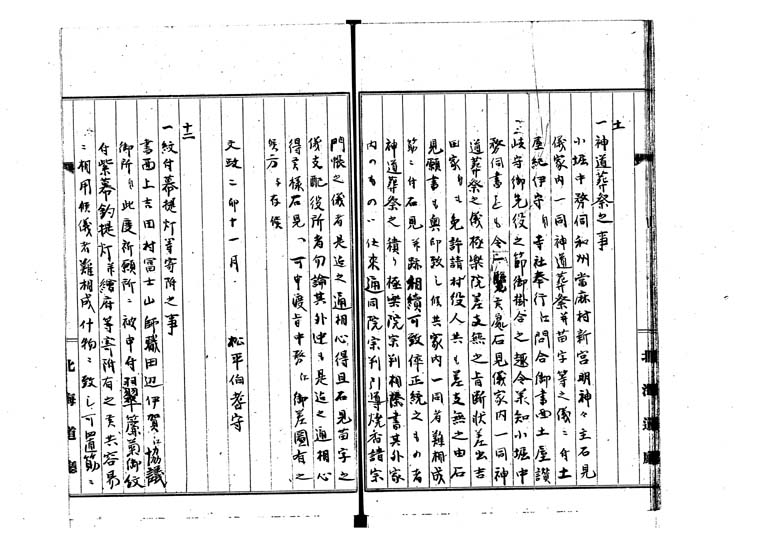 十一
一神道葬祭之事
小堀中務伺和州當麻村新宮明神々主石見
儀家内一同神道葬祭并苗字等之儀ニ付土
屋紀伊守ゟ寺社奉行江問合御書面土屋讃
岐守御先役之節御掛合之趣令承知小堀中
務伺書とも令一覧候処石見儀家内一同神
道葬祭之儀極楽院差支無之旨断状差出吉
田家ゟも免許請村役人共も差支無之由石
見願書も奥印致し候共家内一同者難相成
第ニ付石見并跡相續可致倅正統之もの者
神道葬祭之積り極楽院宗判相除書其外家
内のものハ仕来通同院宗判引導焼香諸宗
門帳之儀者是迄之通相心得且石見苗字之
儀支配役所者勿論其外迚も是迄之通相心
得候様石見江可申渡旨中務江御差圖有之
可然方ニ存候
文政二卯十一月 松平伯耆守
十二
一紋付幕提灯等寄附之事
書面上吉田村冨士山師職田辺伊賀江協議
御所ゟ此度祈願所ニ被申付翠簾菊御紋
付紫幕釣提灯并繪府等寄附有之候共容易
ニ相用候儀者難相成什物ニ致し可置筋ニ
北海道廳
北海道廳